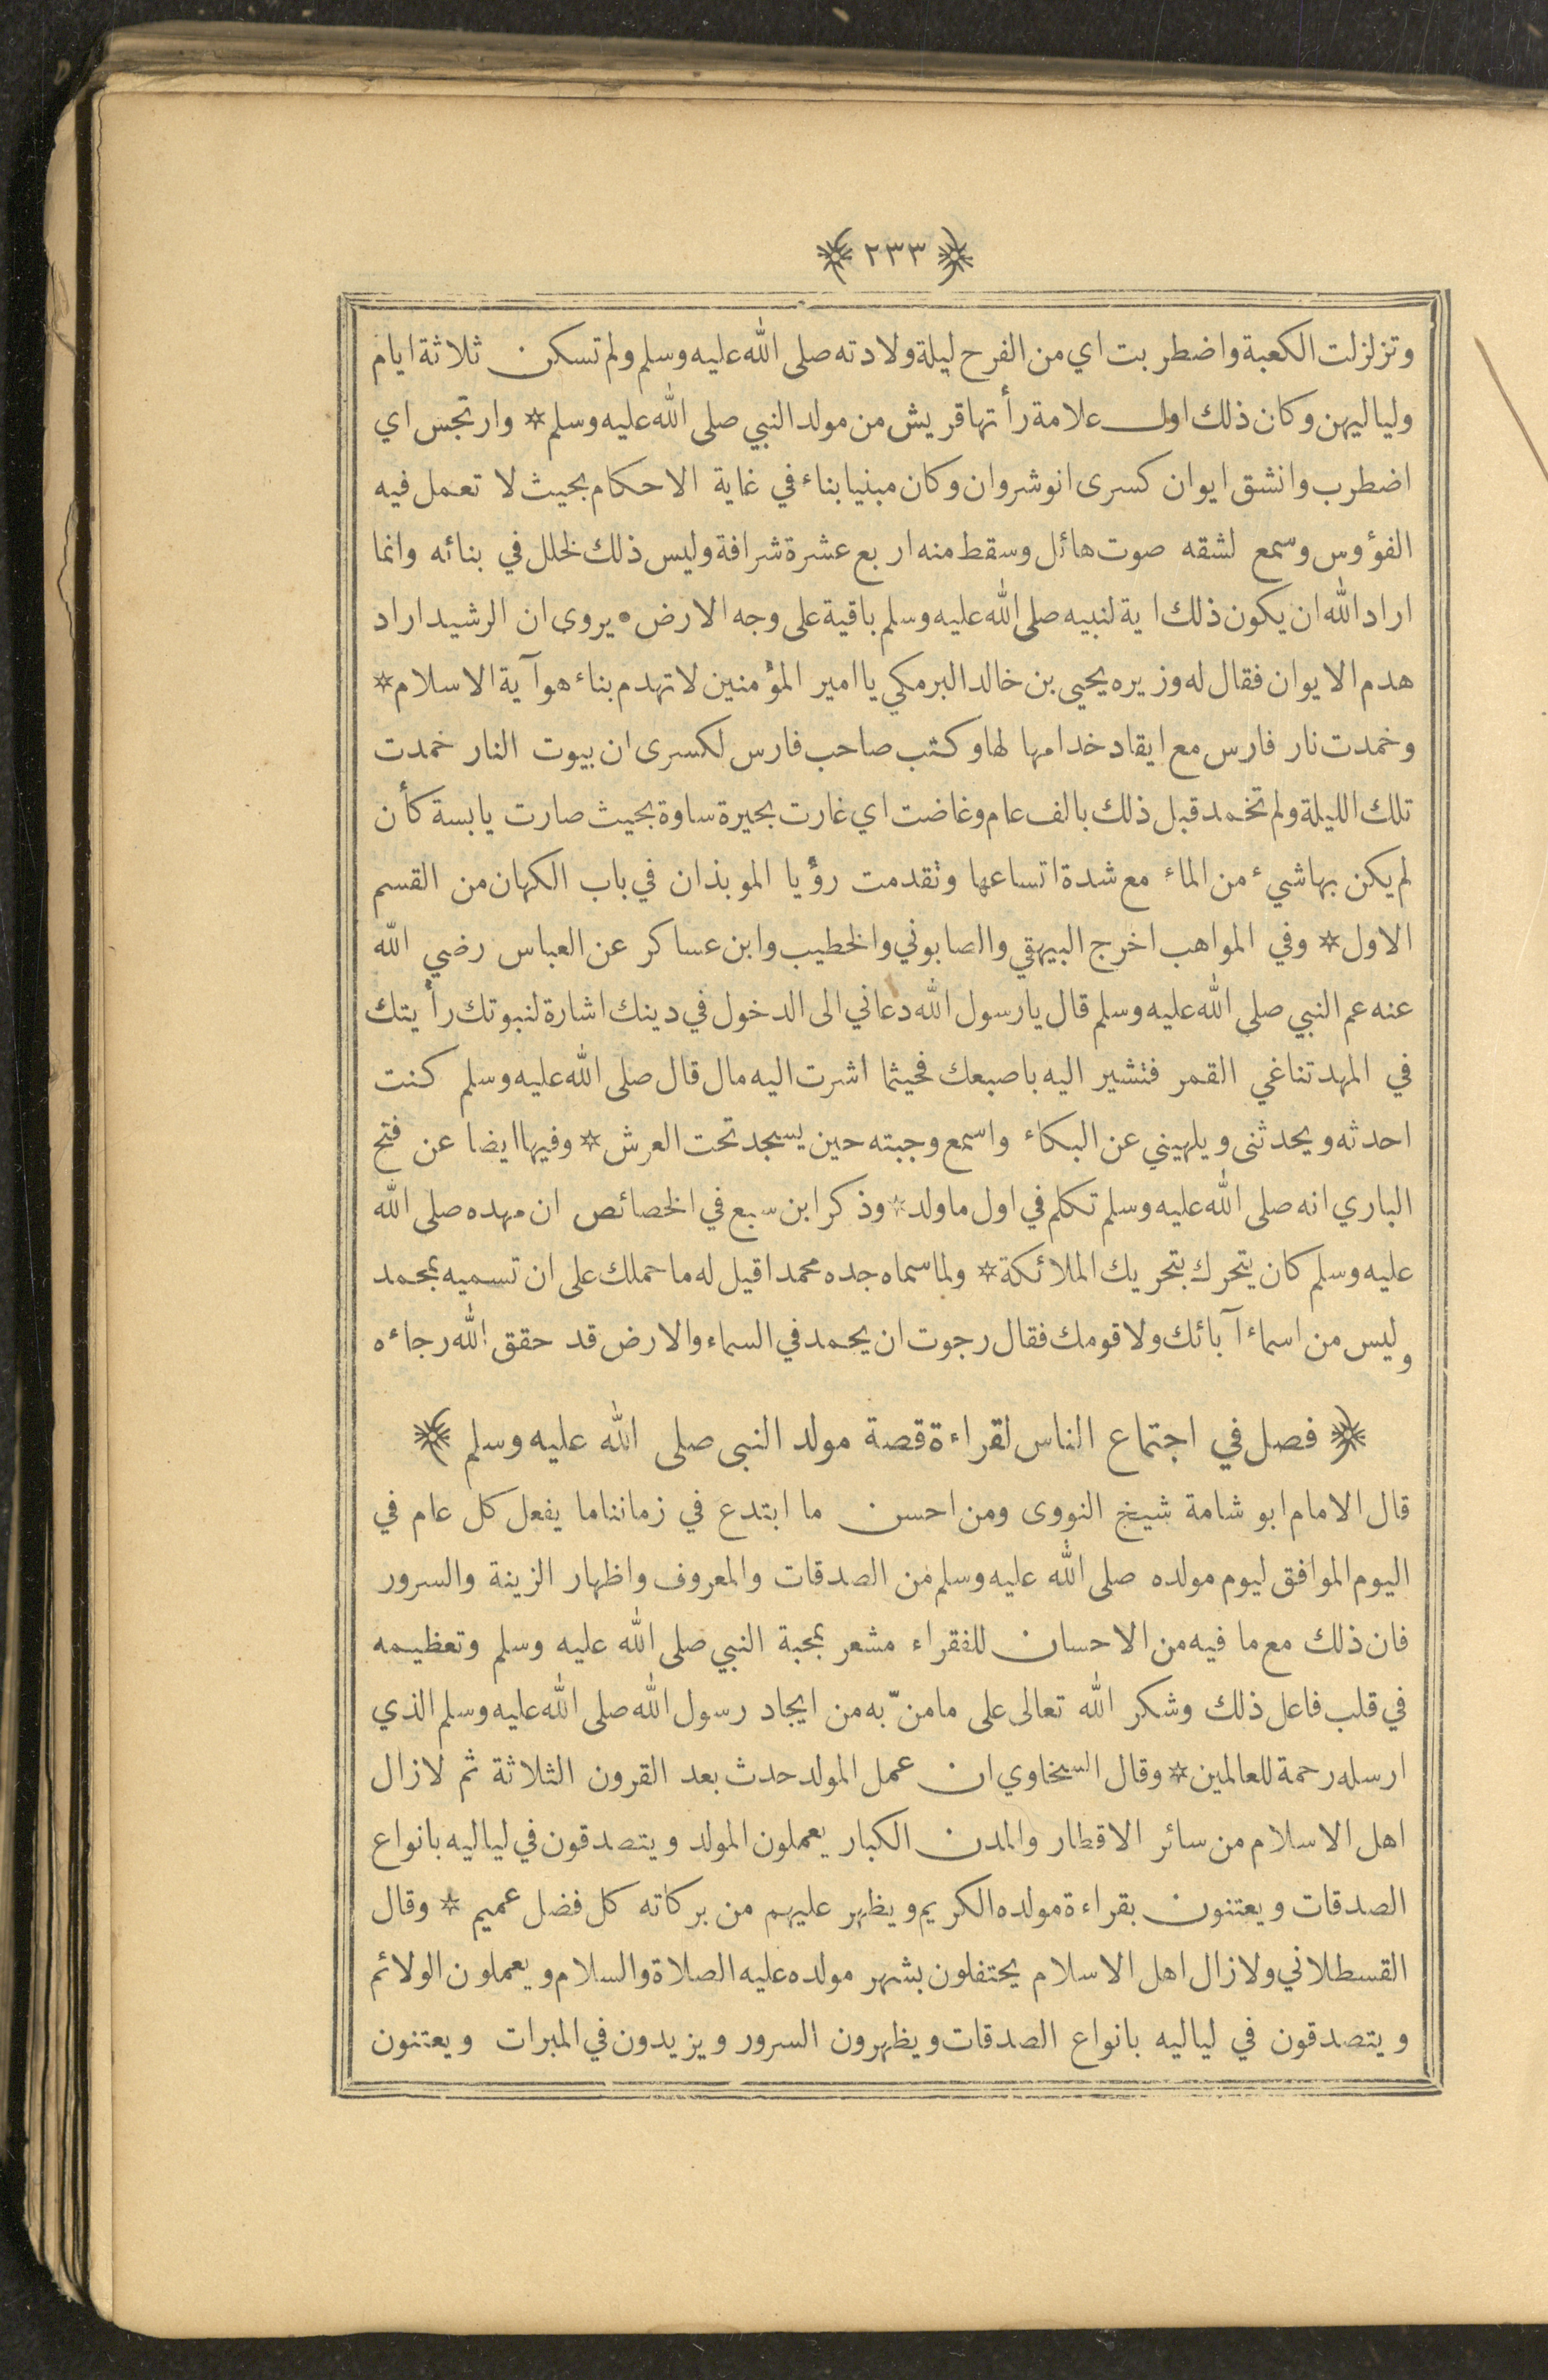 ﴿ ٢٣٣ ﴾
وتزلزلت الكعبة واضطربت اي من الفرح ليلة ولادته صلى الله عليه وسلم ولم تسكن ثلاثة ايام
ولياليهن وكان ذلك اول علامة رأتها قريش من مولد النبي صلى الله عليه وسلم * وارتجس اي
اضطرب وانشق ايوان كسرى انوشروان وكان مبنيا بناء في غاية الاحكام بحيث لا تعمل فيه
الفؤوس وسمع لشقه صوت هائل وسقط منه اربع عشرة شرافة وليس ذلك لخلل في بنائه وانما
اراد الله ان يكون ذلك اية لنبيه صلى الله عليه وسلم باقية على وجه الارض ٠ يروى ان الرشيد اراد
هدم الايوان فقال له وزيره يحيى بن خالد البرمكي يا امير المؤمنين لا تهدم بناء هو آية الاسلام *
وخمدت نار فارس مع ايقاد خدامها لها وكتب صاحب فارس لكسرى ان بيوت النار خمدت
تلك الليلة ولم تخمد قبل ذلك بالف عام وغاضت اي غارت بحيرة ساوة بحيث صارت يابسة كأن
لم يكن بها شيء من الماء مع شدة اتساعها وتقدمت رؤيا الموبذان في باب الكهان من القسم
الاول * وفي المواهب اخرج البيهقي والصابوني والخطيب وابن عساكر عن العباس رضي الله
عنه عم النبي صلى الله عليه وسلم قال يا رسول الله دعاني الى الدخول في دينك اشارة لنبوتك رأيتك
في المهد تناغي القمر فتشير اليه باصبعك فحيثما اشرت اليه مال قال صلى الله عليه وسلم كنت
احدثه ويحدثنى ويلهيني عن البكاء واسمع وجبته حين يسجد تحت العرش * وفيها ايضا عن فتح
الباري انه صلى الله عليه وسلم تكلم في اول ما ولد * وذكر ابن سبع في الخصائص ان مهده صلى الله
عليه وسلم كان يتحرك بتحريك الملائكة * ولما سماه جده محمدا قيل له ما حملك على ان تسميه بمحمد
وليس من اسماء آبائك ولا قومك فقال رجوت ان يحمد في السماء والارض قد حقق الله رجاءه
﴿ فصل في اجتماع الناس لقراءة قصة مولد النبى صلى الله عليه وسلم ﴾
قال الامام ابو شامة شيخ النووى ومن احسن ما ابتدع في زماننا ما يفعل كل عام في
اليوم الموافق ليوم مولده صلى الله عليه وسلم من الصدقات والمعروف واظهار الزينة والسرور
فان ذلك مع ما فيه من الاحسان للفقراء مشعر بمحبة النبي صلى الله عليه وسلم وتعظيمه
في قلب فاعل ذلك وشكر الله تعالى على ما منّ به من ايجاد رسول الله صلى الله عليه وسلم الذي
ارسله رحمة للعالمين * وقال السخاوي ان عمل المولد حدث بعد القرون الثلاثة ثم لا زال
اهل الاسلام من سائر الاقطار والمدن الكبار يعملون المولد ويتصدقون في لياليه بانواع
الصدقات ويعتنون بقراءة مولده الكريم ويظهر عليهم من بركاته كل فضل عميم * وقال
القسطلاني ولا زال اهل الاسلام يحتفلون بشهر مولده عليه الصلاة والسلام ويعملون الولائم
ويتصدقون في لياليه بانواع الصدقات ويظهرون السرور ويزيدون في المبرات ويعتنون